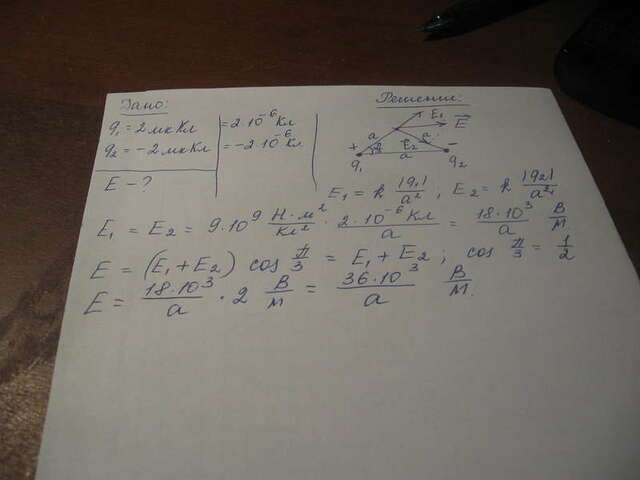 Дано:
q₁ = 2 мкКл = 2·10⁻⁶ Кл
q₂ = −2 мкКл = −2·10⁻⁶ Кл
E − ?
Решение:
E₁
E
a a
E₂
+ −
q₁ a q₂
E₁ = k |q₁|/a², E₂ = k |q₂|/a²
E₁ = E₂ = 9·10⁹ Н·м²/Кл² · 2·10⁻⁶ Кл/a = 18·10³/a В/м
E = (E₁ + E₂) cos π/3 = E₁ + E₂; cos π/3 = 1/2
E = 18·10³/a · 2 В/м = 36·10³/a В/м.